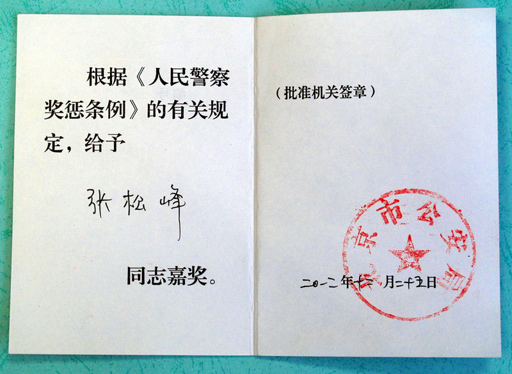 根据《人民警察
奖惩条例》的有关规
定，给予
张松峰
同志嘉奖。
（批准机关签章）
北京市公安局
二〇一二年十二月二十五日